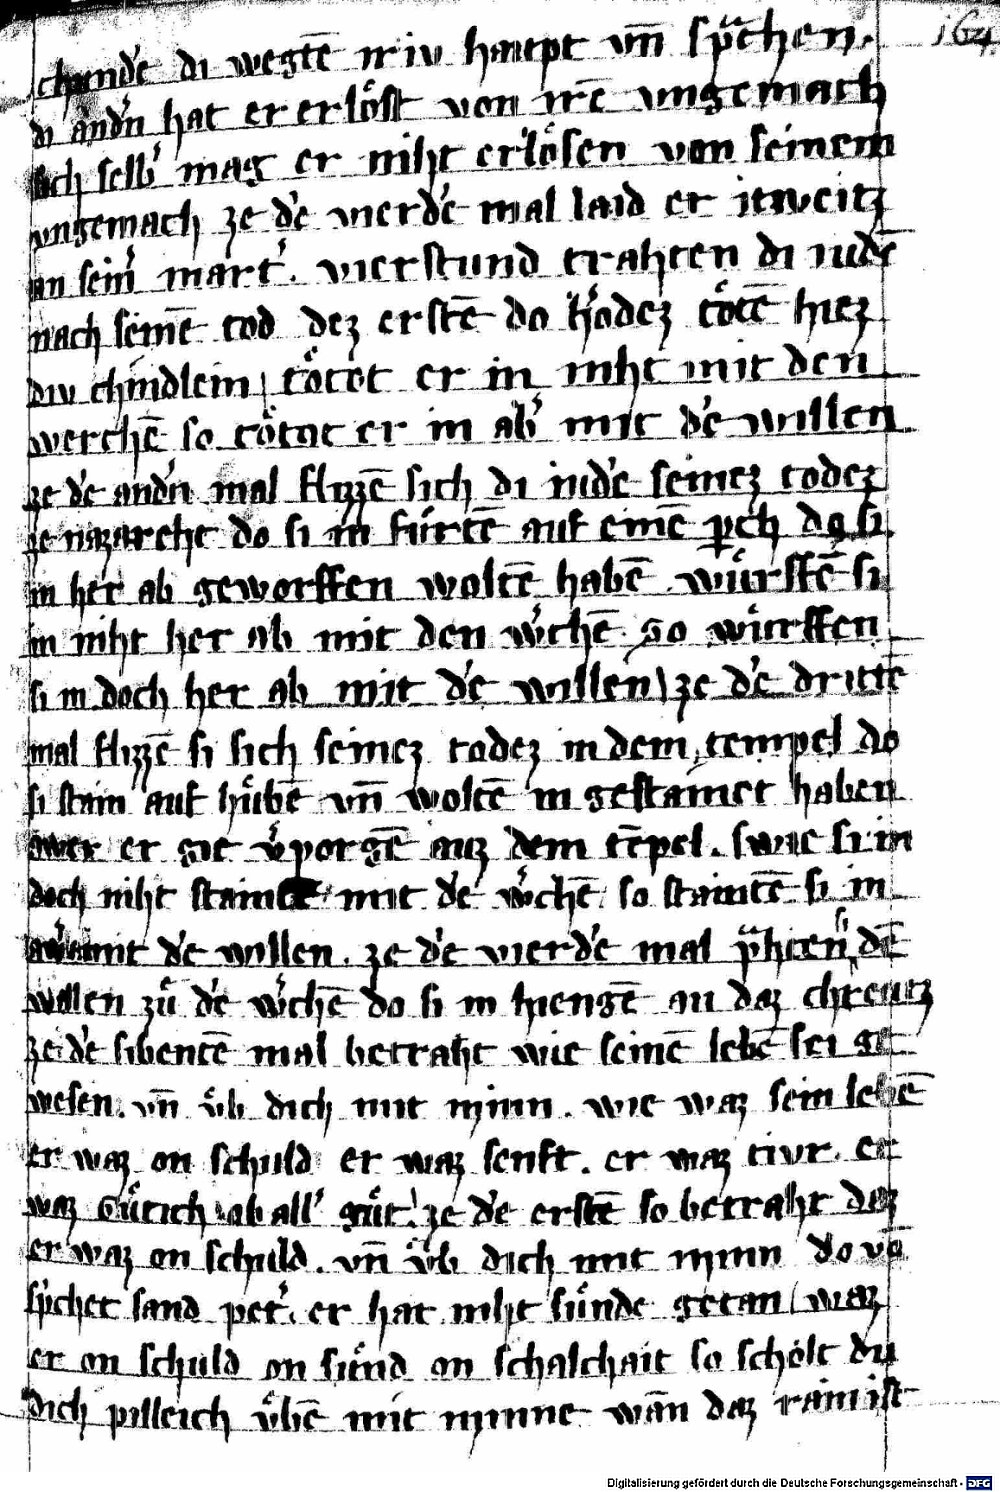 164
chunde di wegtē iriv haupt vn̄ sp̄chen.
di and'n hat er erlöst von irē vngemach
sich selb' mag er niht erlösen von seinem
vngemach ze d'e vierd'e mal laid er itweitz
an sein' mart'. vierstund trahten di iudē
nach seinē tod dez erstē do h'odez tötē hiez
div chindlein, tötot er in niht mit den
werchē so tötot er in ab' mit d'e willen
ze d'e and'n mal flizzē sich di iud'e seinez todez
ze nazareht do si in fürtē auf einē p'ch do si
in her ab geworffen woltē habē. würffē si
in niht her ab mit den w'chē. so würffen
si in doch her ab mit d'e willen, ze d'e drittē
mal flizzē si sich seinez todez in dem tempel do
si stain auf hübē vn̄ woltē in gestainet haben
awer er gie v'porgē auz dem tēpel. swie si in
doch niht stainte mit d'e w'chē so staintē si in
aw' mit d'e willen. ze d'e vierd'e mal p̄hten si dē
willen zu d'e w'chē do si in hiengē an daz chreutz
ze d'e sibentē mal betraht wie seinē lebē sei ge
wesen. vn̄ v'b dich mit minn. wie waz sein lebē
er waz on schuld er waz senft. er waz tivr. er
waz gütich ob all' güt. ze d'e erstē so betraht daz
er waz on schuld. vn̄ v'b dich mit minn do vō
sp̄chet sand pet'. er hat niht sünde getan, waz
er on schuld on sünd on schalchait so scholt du
dich pilleich v'bē mit minne wān daz rain ist
Digitalisierung gefördert durch die Deutsche Forschungsgemeinschaft - DFG